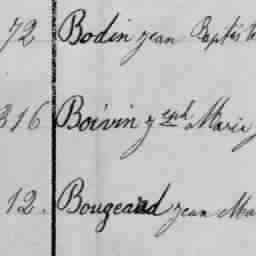 72 Bodin jean Baptiste
316 Boivin jseph Marie
12. Bougeard jean Ma